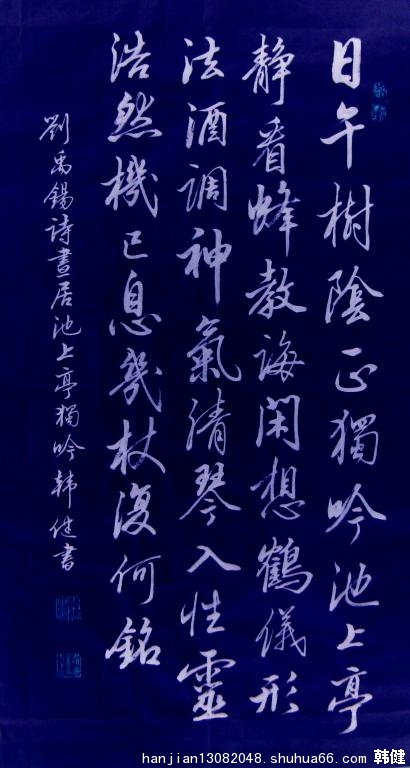 日午樹陰正獨吟池上亭
静看蜂教誨閑想鶴儀形
法酒調神氣清琴入性靈
浩然機已息幾杖復何銘
劉禹錫詩晝居池上亭獨吟韩健書
hanjian13082048.shuhua66.com 韩健